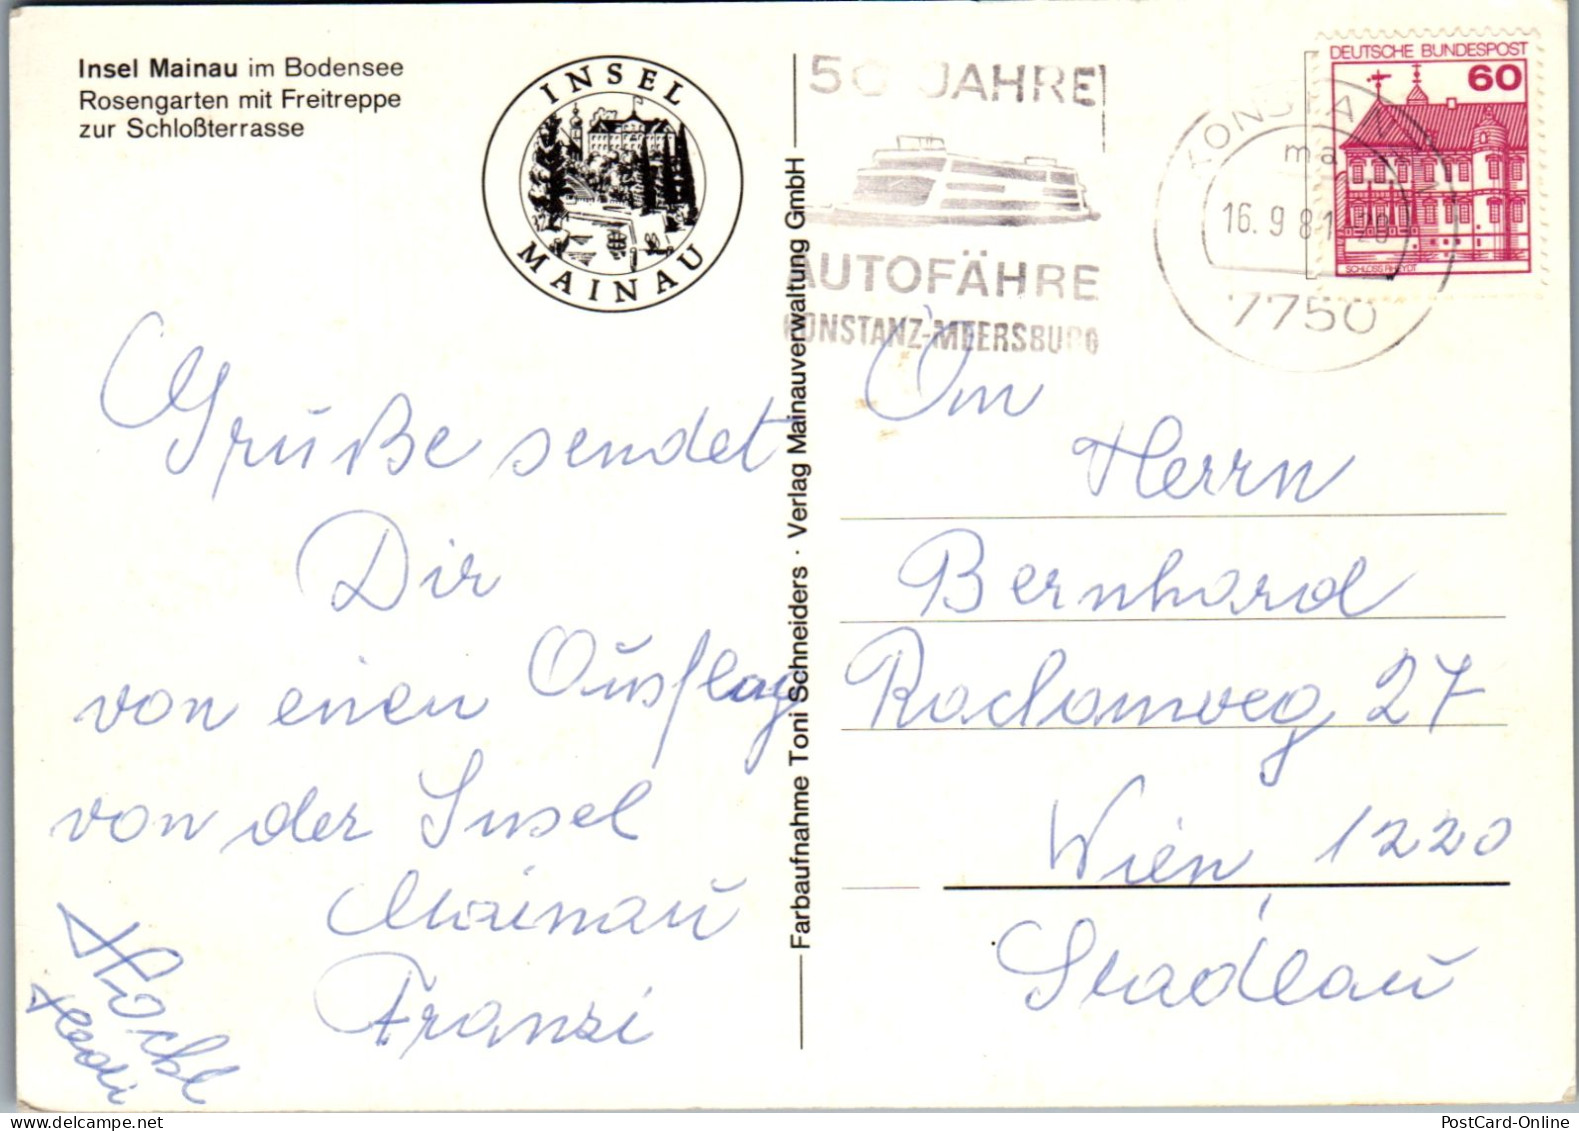 Insel Mainau im Bodensee
Rosengarten mit Freitreppe
zur Schloßterrasse
INSEL
MAINAU
Grüße sendet
Dir
von einen Ausflag
von der Insel
Mainau
Franzi
Heidi
Farbaufnahme Toni Schneiders · Verlag Mainauverwaltung GmbH
50 JAHRE
AUTOFÄHRE
KONSTANZ-MEERSBURG
KONSTANZ
ma
16.9.81-20
7750
DEUTSCHE BUNDESPOST
60
SCHLOSS RHEYDT
An
Herrn
Bernhard
27
Wien 1220
Stadlau
PostCard-Online